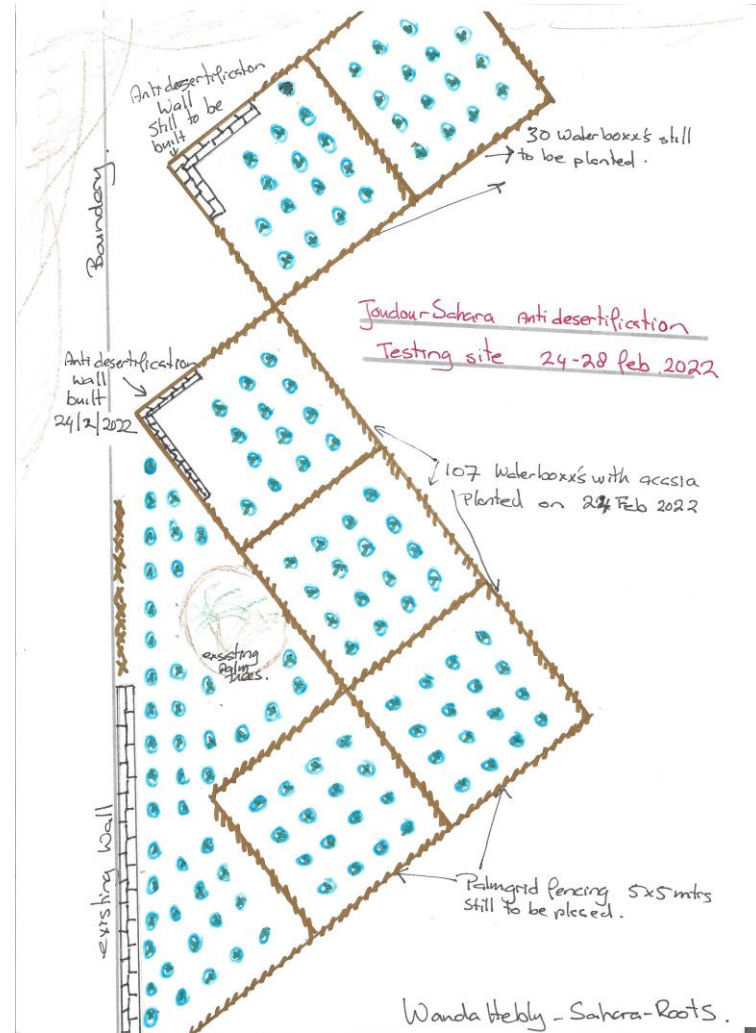 Antidesertification
Wall
Still to be
built
30 Waterboxx's still
to be planted.
Boundery.
Joudour Sahara Antidesertification
Testing site 24-28 feb. 2022
Antidesertification
wall
built
24/2/2022
107 Waterboxx's with acasia
Planted on 24 Feb 2022
exsisting
palm
trees.
existing Wall
Palmgrid fencing 5x5 mtrs
still to be placed.
Wanda Hebly - Sahara-Roots.